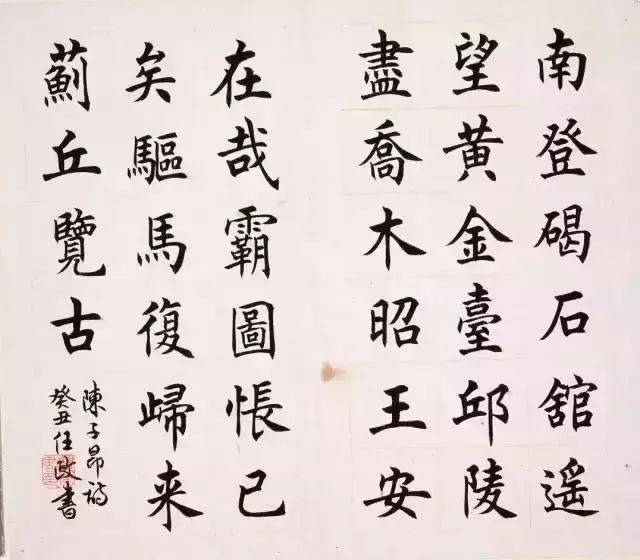 南登碣石舘遥
望黄金臺邱陵
盡喬木昭王安
在哉霸圖悵已
矣驅馬復歸来
薊丘覽古
陳子昂诗
癸丑任政書